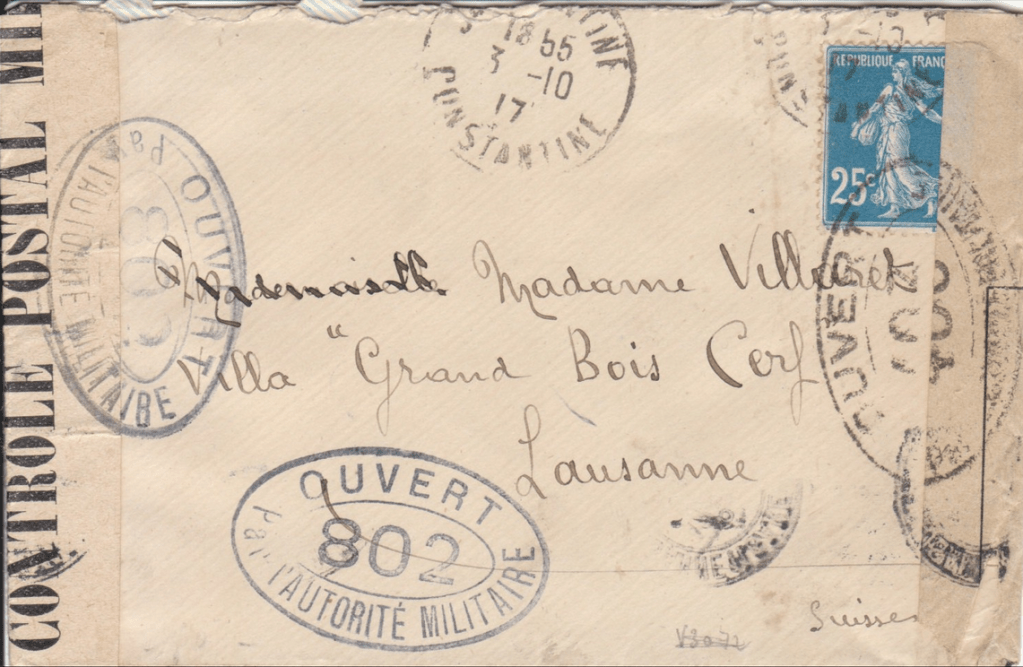 CONTROLE POSTAL MI
18 55
3 -10
17
CONSTANTINE
REPUBLIQUE FRANC
25c
OUVERT
Par l'AUTORITÉ MILITAIRE
Mademoiselle Madame Villaret
Villa "Grand Bois Cerf
Lausanne
OUVERT
802
Par l'AUTORITÉ MILITAIRE
OUVERT
Suisse